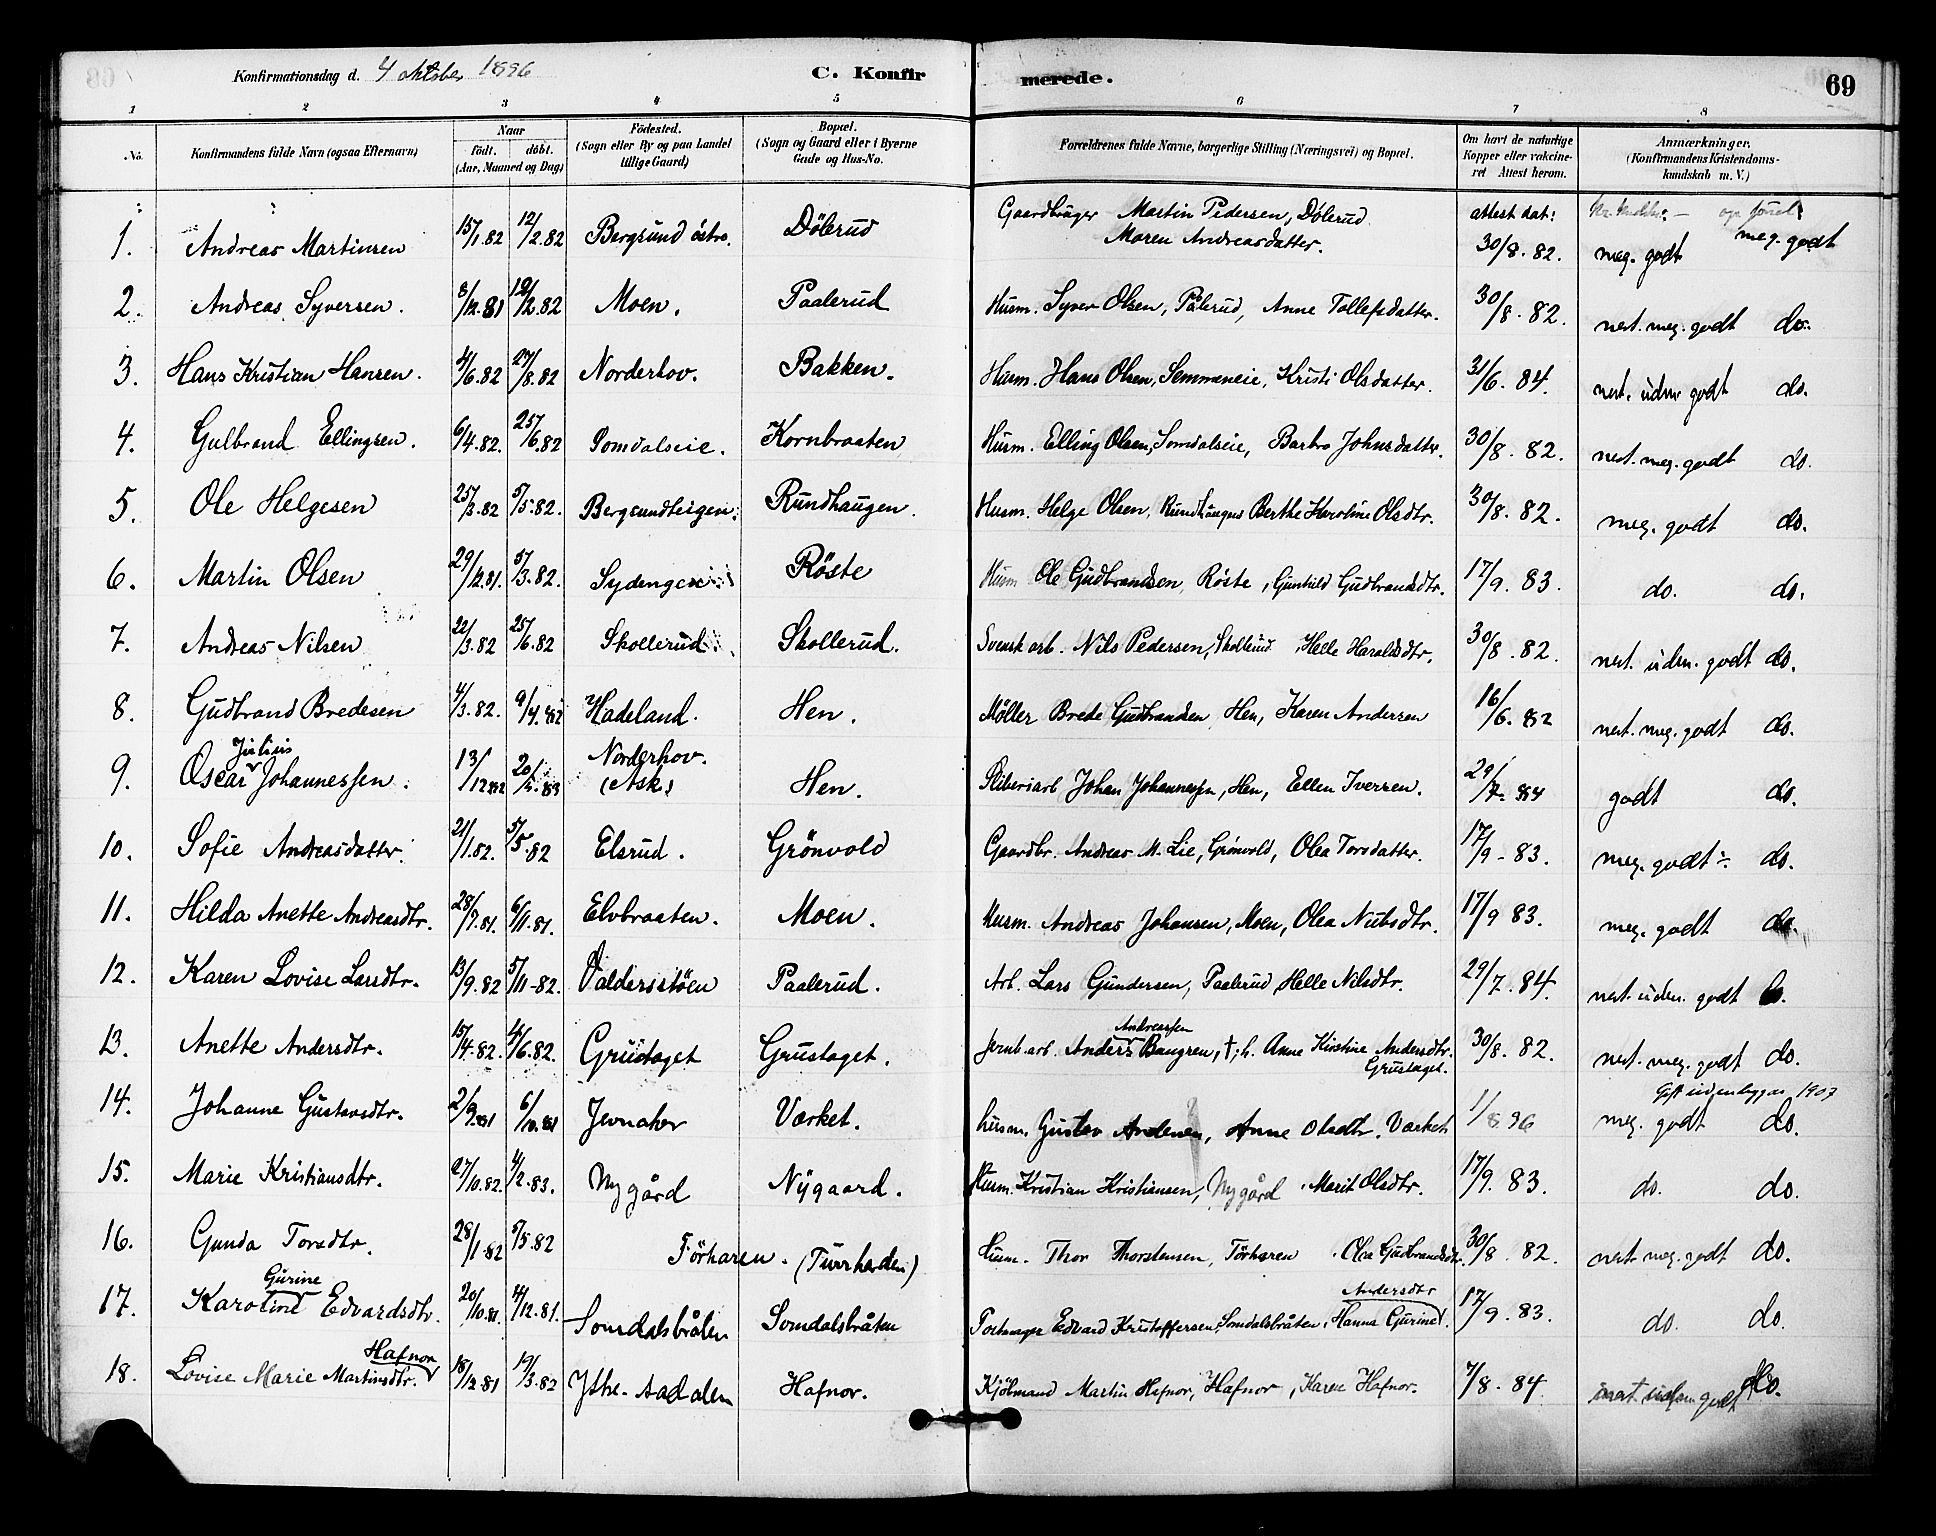 Konfirmationsdag d. 4 oktober 1896 C. Konfir merede. 69
1 2 3 4 5 6 7 8
No. Konfirmandens fulde Navn (ogsaa Efternavn) Naar født. døbt. (Aar, Maaned og Dag) Fødested. (Sogn eller By og paa Landet tillige Gaard) Bopæl. (Sogn og Gaard eller i Byerne Gade og Hus-No. Forældrenes fulde Navne, borgerlige Stilling (Næringsvei) og Bopæl. Om havt de naturlige Kopper eller vakcineret Attest herom. Anmærkninger. (Konfirmandens Kristendomskundskab m. V.)
1. Andreas Martinsen 15/1.82 12/2.82 Bergsund östre. Dölerud Gaardbruger Martin Pedersen, Dölerud Maren Andreasdatter. attest dat: 30/8.82. meg. godt meg. godt
2. Andreas Syversen. 8/12.81 12/2.82 Moen. Paalerud Husm. Syver Olsen, Pålerud, Anne Tollefsdatter. 30/8.82. nest. meg. godt do.
3. Hans Kristian Hansen. 4/6.82 27/8.82 Norderhov. Bakken. Husm. Hans Olsen, Semmeneie, Kristi Olsdatter. 31/6.84. nest. udm. godt do.
4. Gulbrand Ellingsen. 6/4.82. 25/6.82 Somdalseie. Kornbraaten Husm. Elling Olsen, Somdalseie, Barbro Johnsdatter. 30/8.82. nest. meg. godt do.
5. Ole Helgesen 25/3.82 5/5.82. Bergsundteigen. Rundhaugen. Husm. Helge Olsen, Rundhaugen Berthe Karoline Olsdtr. 30/8.82. meg. godt do.
6. Martin Olsen 29/12.81. 5/3.82. Sydengen Röste Husm Ole Gudbrandsen, Röste, Gunhild Gudbrandsdtr. 17/9.83. do. do.
7. Andreas Nilsen 22/3.82 25/6.82 Skollerud. Skollerud. Svensk arb. Nils Pedersen, Skollerud, Helle Haraldsdtr. 30/8.82. nest. udm. godt do.
8. Gudbrand Bredesen 4/3.82. 9/4.82 Hadeland. Hen. Møller Brede Gudbrandsen, Hen, Karen Andersen 16/6.82 nest. meg. godt do.
9. Oscar Julius Johannessen. 13/12 82 20/5.83 Norderhov. (Ask) Hen. Sliberiarb Johan Johannessen, Hen, Ellen Iversen. 29/7.84 godt do.
10. Sofie Andreasdatter. 21/1.82. 5/5.82 Elsrud. Grönvold Gaardbr. Andreas M. Lie, Grönvold, Olea Torsdatter. 17/9-83. meg. godt ÷ do.
11. Hilda Anette Andreasdtr. 28/7.81. 6/11.81. Elvbraaten. Moen. Husm. Andreas Johansen, Moen, Olea Nubsdtr. 17/9 83. meg. godt do.
12. Karen Lovise Larsdtr. 13/9.82 5/11-82. Valdersstöen Paalerud. Arb. Lars Gundersen, Paalerud, Helle Nilsdtr. 29/7.84. nest. udm. godt do.
13. Anette Andersdtr. 15/4.82. 4/6.82. Grustaget Grustaget. Jernb.arb. Anders Andreassen Baugren, †, h. Anne Kirstine Andersdtr. Grustaget. 30/8.82. nest. meg. godt do.
14. Johanne Gustavsdtr. 2/9.81 6/10.81 Jevnaker Værket. husm. Gustav Andersen, Anne Olsdtr. Værket 1/8 96 Gift udenbygds 1907 meg. godt do.
15. Marie Kristiansdtr. 27/10.82. 4/2.83. Nygård Nygaard. Husm. Kristian Kristiansen, Nygård, Marit Olsdtr. 17/9.83. do. do.
16. Gunda Torsdtr. 28/1.82 5/5.82 Törharen. (Turrharden) Husm. Thor Thorstensen, Törharen, Olea Gudbrandsdtr. 30/8.82. nest. meg. godt do.
17. Karoline Gurine Edvardsdtr. 20/10.81. 4/12.81. Somdalsbråten Somdalsbråten Edvard Kristoffersen, Somdalsbråten, Hanna Gurine Andersdtr. 17/9.83. do. do.
18. Lovise Marie Martinsdtr. Hafnor 18/12.81 19/3.82 Ytre-Aadalen Hafnor. Kjölmand Martin Hafnor, Hafnor, Karen Hafnor. 7/8.84. nest. udm. godt do.